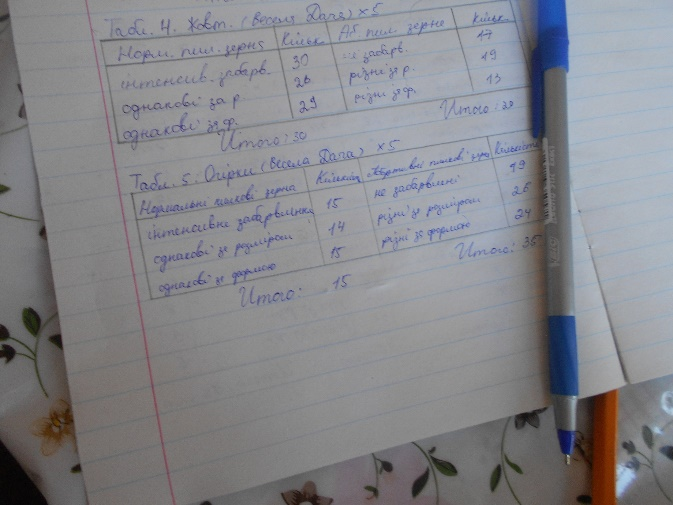 Табл. 4. Жовт. (Весела Дача) ×5
Норм. пил. зерна Кільк. Аб. пил. зерна Кільк.
інтенсив. забарв. 30 не забарв. 17
однакові за р. 26 різні за р. 19
однакові за ф. 29 різні за ф. 13
Итого: 30 Итого: 20
Табл. 5. Огірки (Весела Дача) ×5
Нормальні пилкові зерна Кількість Абортивні пилкові зерна Кількість
інтенсивне забарвлення 15 не забарвлені 19
однакові за розміром 14 різні за розміром 26
однакові за формою 15 різні за формою 24
Итого: 15 Итого: 35